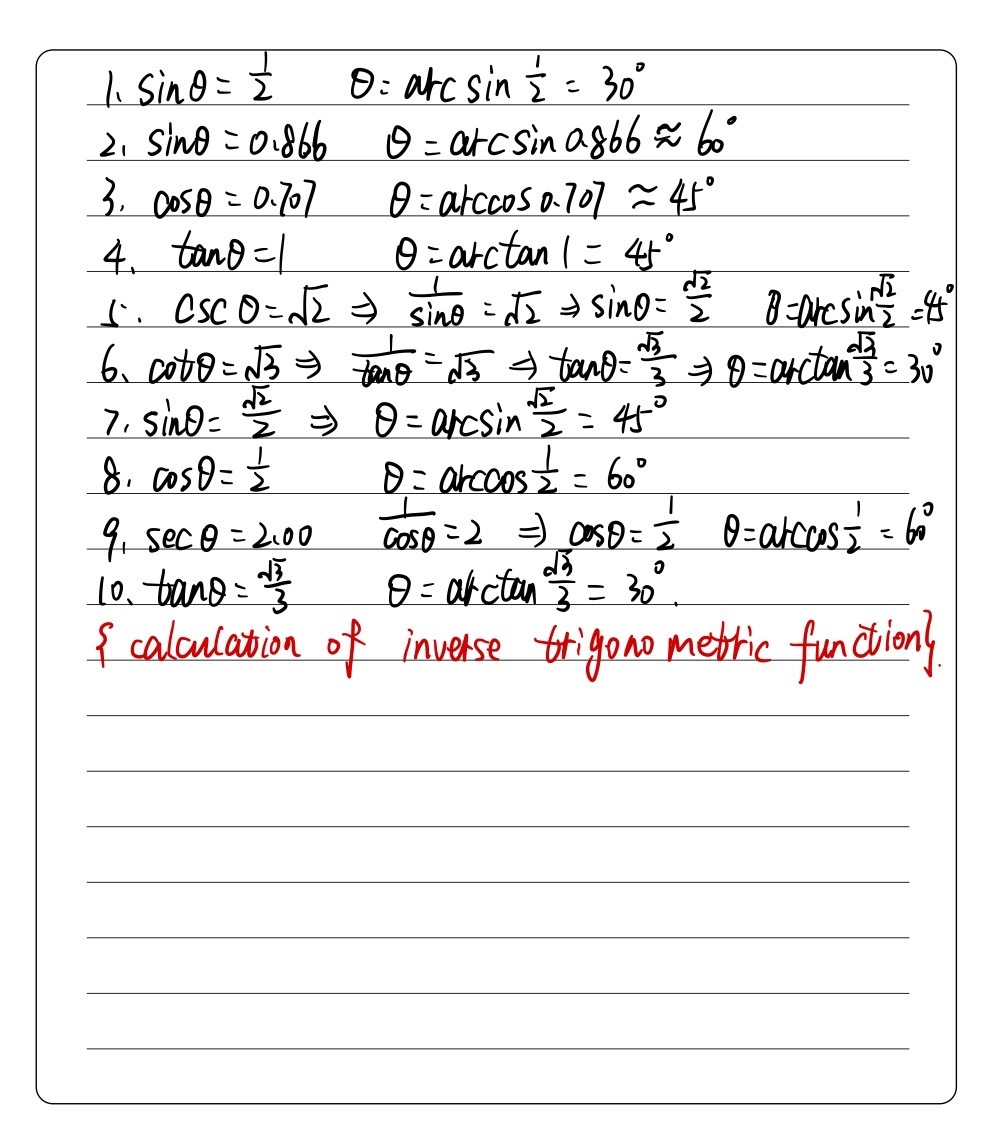 1、sinθ = 1/2 θ = arc sin 1/2 = 30°
2、sinθ = 0.866 θ = arc sin 0.866 ≈ 60°
3、cosθ = 0.707 θ = arccos 0.707 ≈ 45°
4、tanθ = 1 θ = arctan 1 = 45°
5、csc θ = √2 ⇒ 1/sinθ = √2 ⇒ sinθ = √2/2 θ = arcsin √2/2 = 45°
6、cotθ = √3 ⇒ 1/tanθ = √3 ⇒ tanθ = √3/3 ⇒ θ = arctan √3/3 = 30°
7、sinθ = √2/2 ⇒ θ = arcsin √2/2 = 45°
8、cosθ = 1/2 θ = arccos 1/2 = 60°
9、sec θ = 2.00 1/cosθ = 2 ⇒ cosθ = 1/2 θ = arccos 1/2 = 60°
10、tanθ = √3/3 θ = arctan √3/3 = 30°.
{ calculation of inverse trigonometric function}.